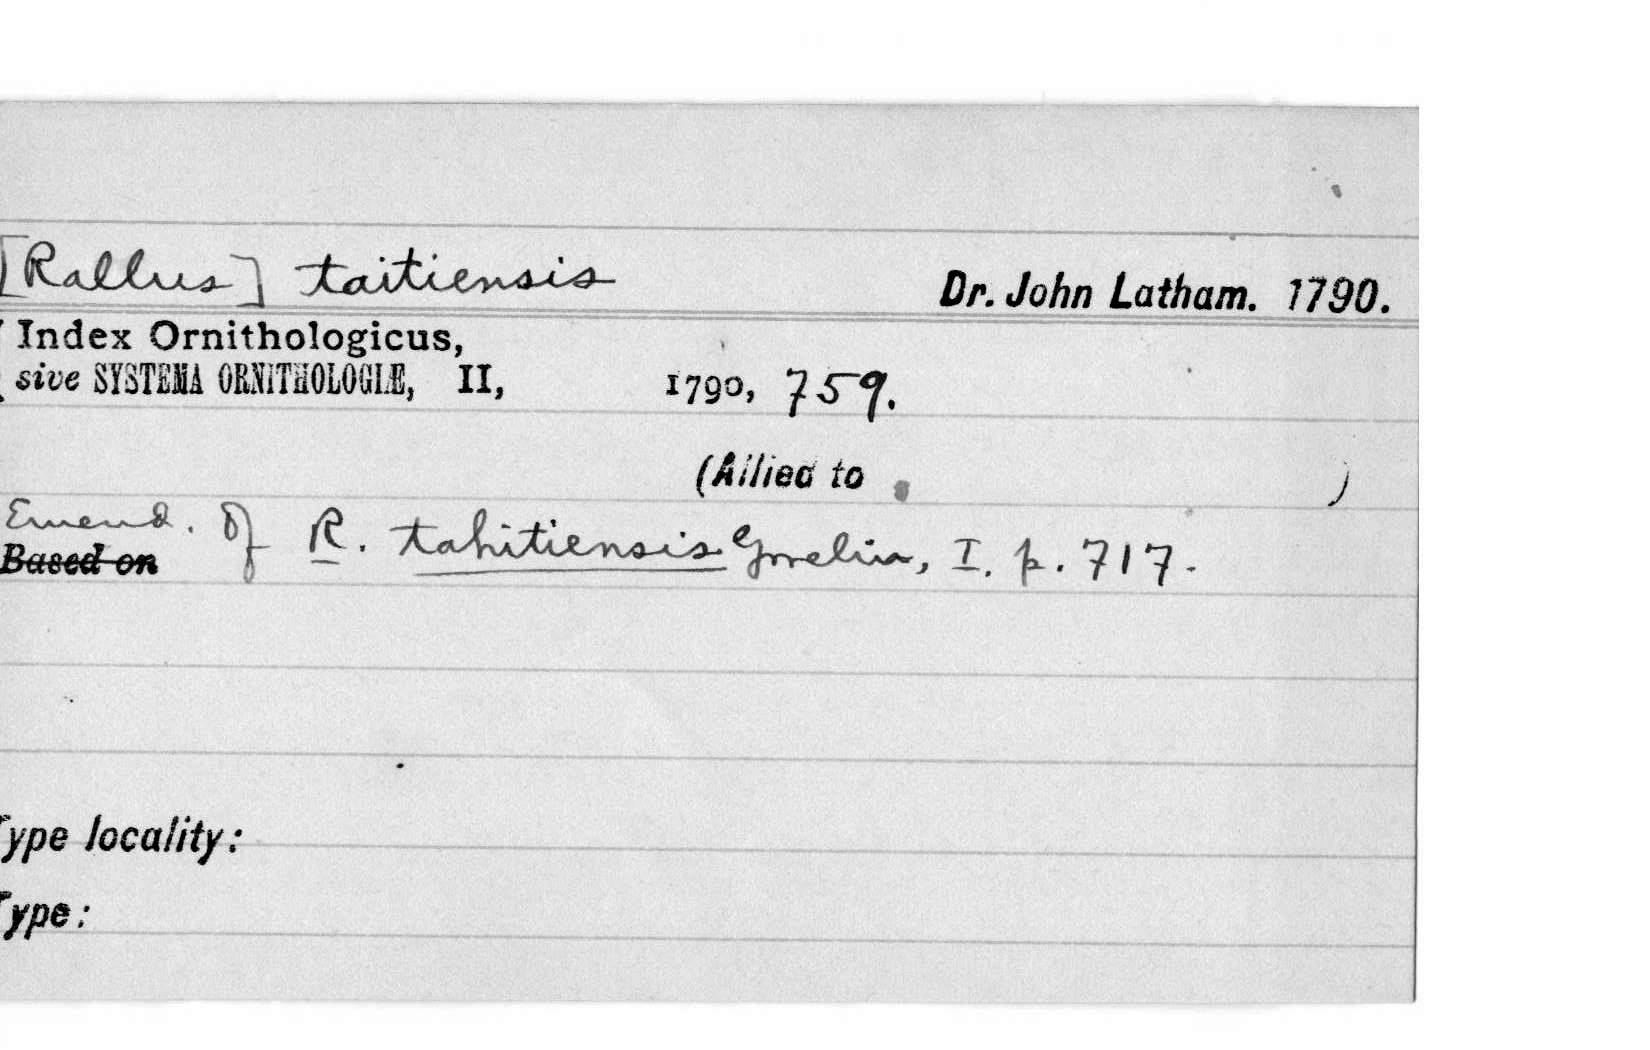 [Rallus] taitiensis Dr. John Latham. 1790.
Index Ornithologicus,
sive SYSTEMA ORNITHOLOGIÆ, II, 1790, 759.
(Allied to )
Emend. of R. tahitiensis Gmelin, I. p. 717.
Based on
Type locality:
Type: